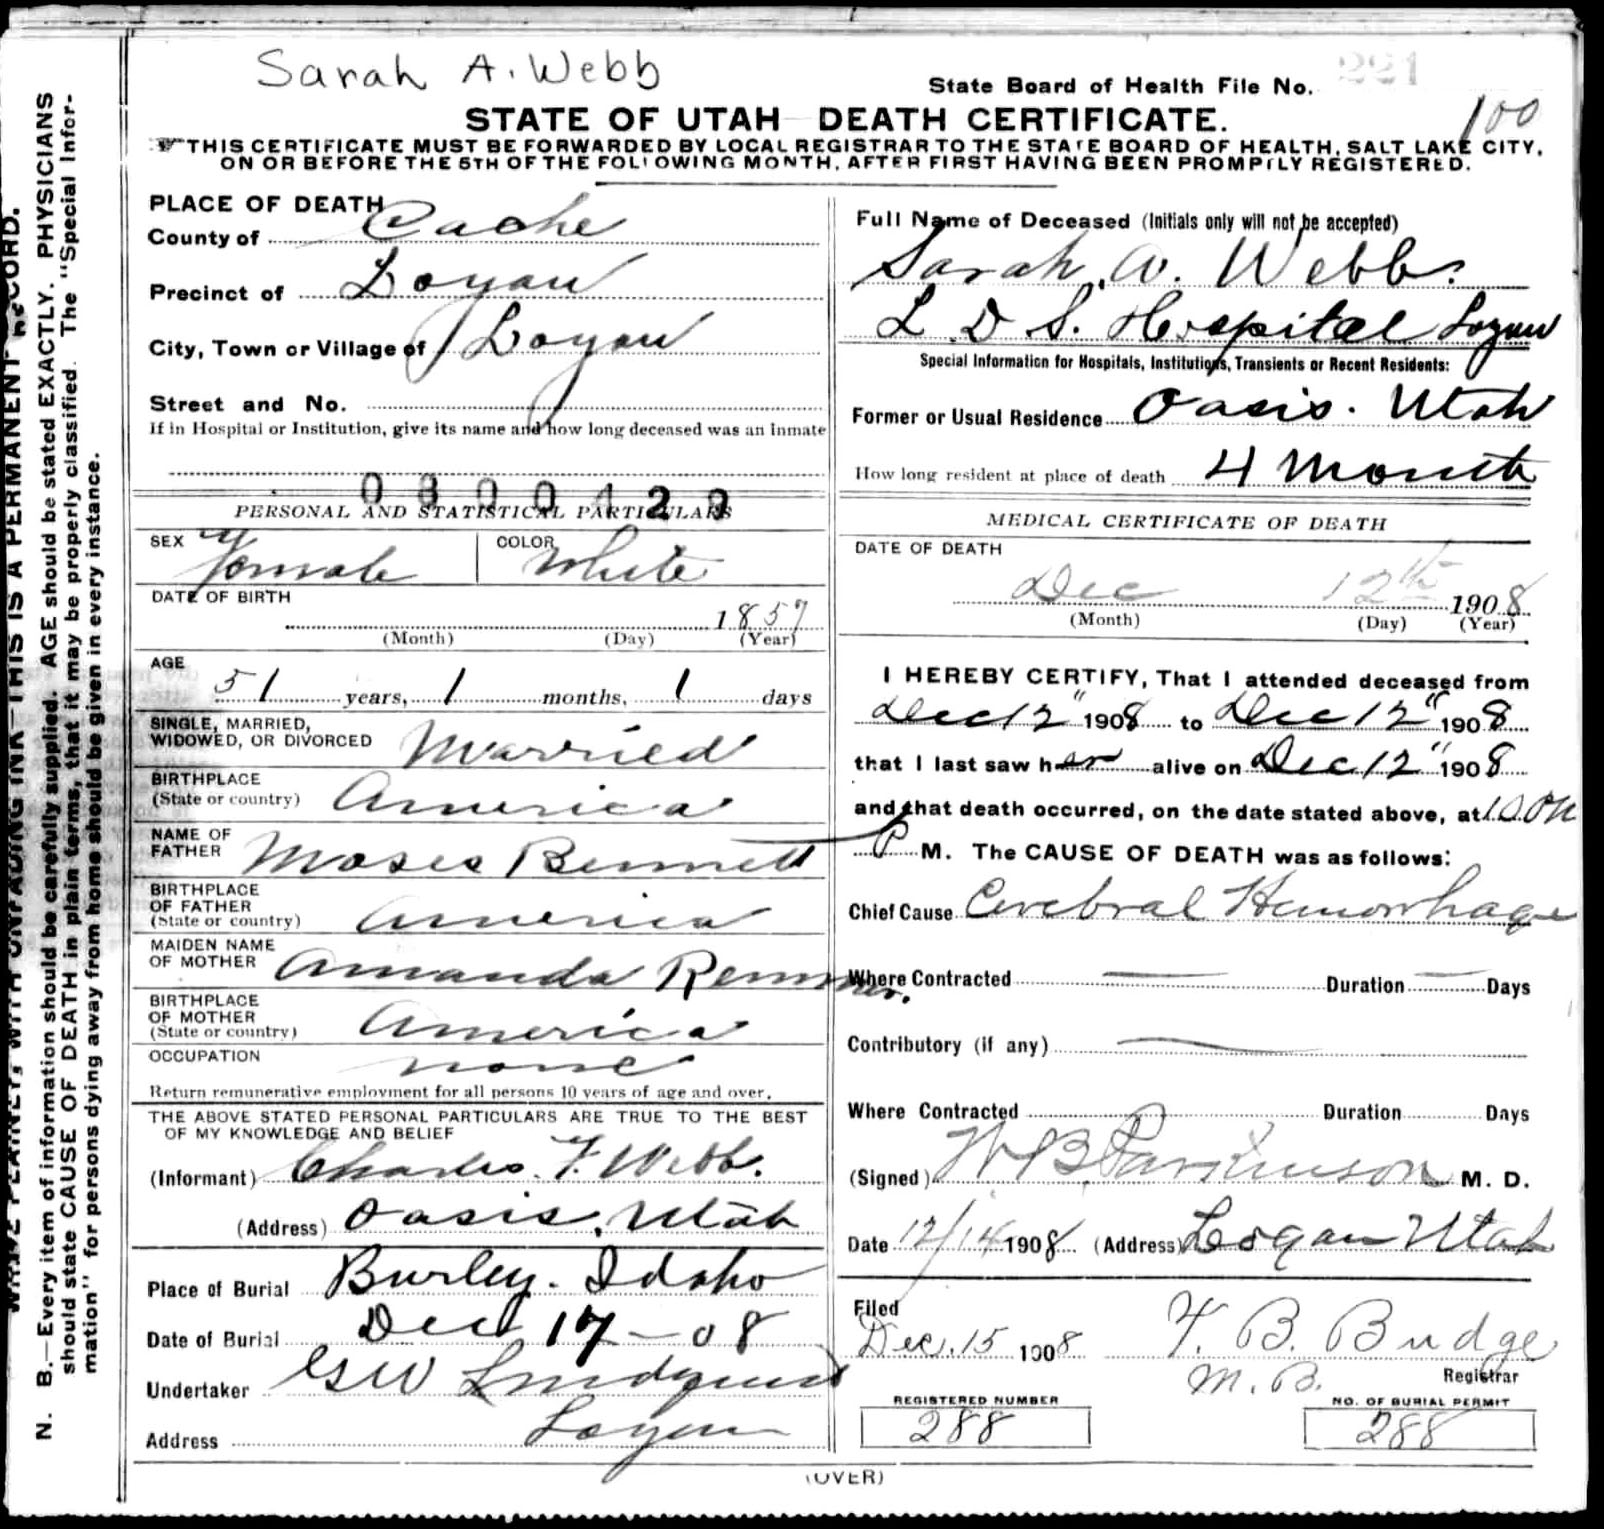 Sarah A. Webb
State Board of Health File No. 221
100
STATE OF UTAH DEATH CERTIFICATE.
THIS CERTIFICATE MUST BE FORWARDED BY LOCAL REGISTRAR TO THE STATE BOARD OF HEALTH, SALT LAKE CITY,
ON OR BEFORE THE 5TH OF THE FOLLOWING MONTH, AFTER FIRST HAVING BEEN PROMPTLY REGISTERED.
WITH UNFADING INK—THIS IS A PERMANENT RECORD.
N. B.—Every item of information should be carefully supplied. AGE should be stated EXACTLY. PHYSICIANS
should state CAUSE OF DEATH in plain terms, that it may be properly classified. The "Special Infor-
mation" for persons dying away from home should be given in every instance.
PLACE OF DEATH
County of Cache
Precinct of Logan
City, Town or Village of Logan
Street and No.
If in Hospital or Institution, give its name and how long deceased was an inmate
PERSONAL AND STATISTICAL PARTICULARS
SEX Female COLOR White
DATE OF BIRTH
1857
(Month) (Day) (Year)
AGE
51 years, 1 months, 1 days
SINGLE, MARRIED,
WIDOWED, OR DIVORCED Married
BIRTHPLACE
(State or country) America
NAME OF
FATHER Moses Bennett
BIRTHPLACE
OF FATHER
(State or country) America
MAIDEN NAME
OF MOTHER Amanda
BIRTHPLACE
OF MOTHER
(State or country) America
OCCUPATION none
Return remunerative employment for all persons 10 years of age and over.
THE ABOVE STATED PERSONAL PARTICULARS ARE TRUE TO THE BEST
OF MY KNOWLEDGE AND BELIEF
(Informant) Charles. F. Webb.
(Address) Oasis, Utah
Place of Burial Burley. Idaho
Date of Burial Dec 17 — 08
Undertaker GW Lindquist
Address Logan
Full Name of Deceased (Initials only will not be accepted)
Sarah. A. Webb.
L. D. S. Hospital Logan
Special Information for Hospitals, Institutions, Transients or Recent Residents:
Former or Usual Residence Oasis. Utah
How long resident at place of death 4 Month
MEDICAL CERTIFICATE OF DEATH
DATE OF DEATH
Dec 12th 1908
(Month) (Day) (Year)
I HEREBY CERTIFY, That I attended deceased from
Dec 12" 1908 to Dec 12" 1908
that I last saw her alive on Dec 12" 1908
and that death occurred, on the date stated above, at
P M. The CAUSE OF DEATH was as follows:
Chief Cause Cerebral Hemorrhage
Where Contracted Duration Days
Contributory (if any)
Where Contracted Duration Days
(Signed) W B Parkinson M. D.
Date 12/14 1908 (Address) Logan Utah
Filed
Dec. 15 1908 T. B. Budge
M. D. Registrar
REGISTERED NUMBER
288
NO. OF BURIAL PERMIT
288
(OVER)